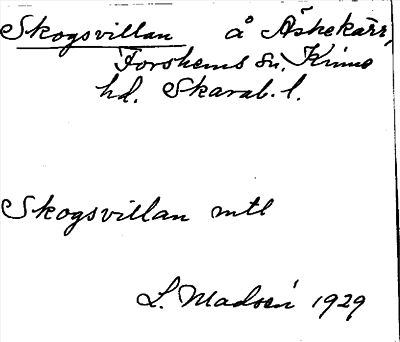 Skogsvillan å Äskekärr,
Forshems sn. Kinne
hd. Skarab. l.
Skogsvillan mtl
L. Madsén 1929